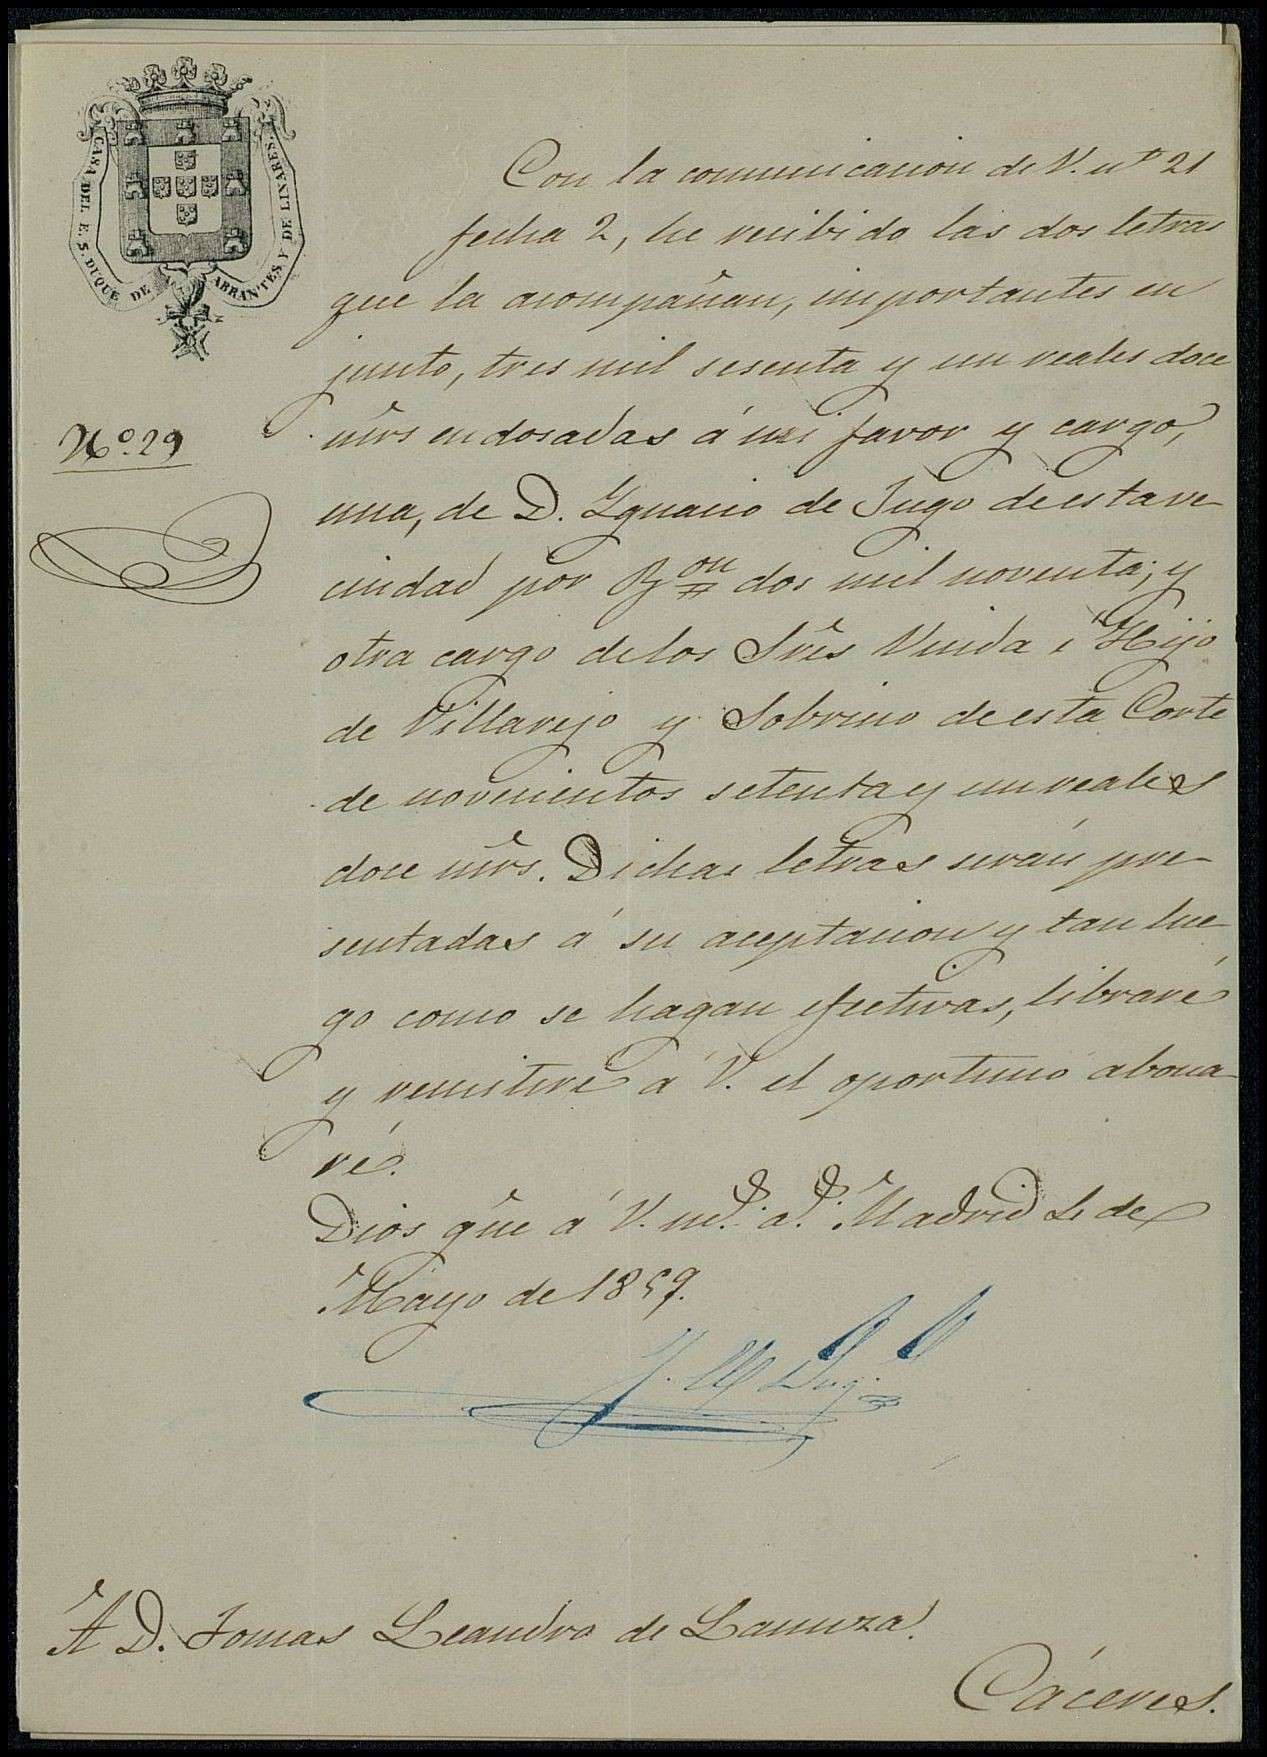 CASA DEL E. S. DUQUE DE ABRANTES Y DE LINARES.
Nº. 29
Con la comunicacion de V. nº 21
fecha 2, he recibido las dos letras
que la acompañan, importantes en
junto, tres mil sesenta y un reales doce
mrs endosadas á mi favor y cargo,
una, de D. Ygnacio de Jugo de esta ve-
cindad por Ron dos mil noventa; y
otra cargo de los Sres Viuda é Hijo
de Villarejo y Sobrino de esta Corte
de novecientos setenta y un reales
doce mrs. Dichas letras serán pre-
sentadas á su aceptacion y tan lue-
go como se hagan efectivas, libraré
y remitiré á V. el oportuno abona-
ré.
Dios gue á V. ms. as. Madrid de
Mayo de 1859.
A D. Tomas Leandro de Lanuza.
Cáceres.